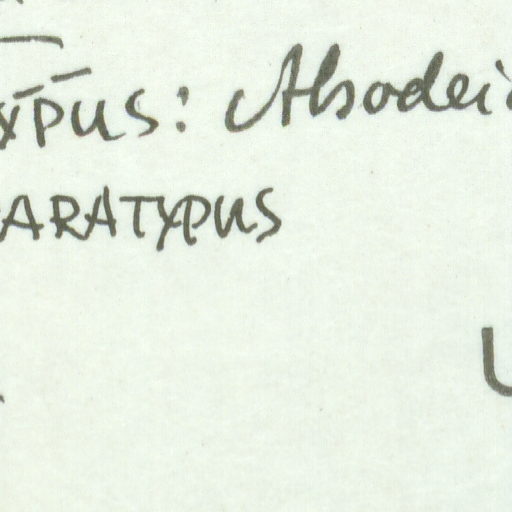 YPUS: Alsodei
ARATYPUS